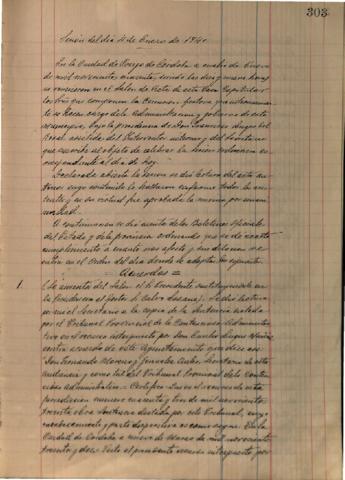 303
Sesión del día 4 de Enero de 1940
En la Ciudad de Priego de Córdoba a cuatro de Enero
de mil novecientos cuarenta, siendo las diez y nueve horas
se reunieron en el Salón de Actos de esta Casa Capitular
los Sres que componen la Comisión Gestora que interinamente
se hacen cargo de la Administración y gobierno de este
municipio, bajo la presidencia de Don Francisco
asistidos del Interventor interino y del Secretario
que suscribe al objeto de celebrar la sesión ordinaria co-
rrespondiente al día de hoy.
Declarada abierta la sesión se dió lectura del acta an-
terior cuyo contenido lo hallaron conforme todos los con-
currentes y en su virtud fue aprobada la misma por unani-
midad.
A continuación se dió cuenta de los Boletines Oficiales
del Estado y de la provincia ordenando se dé exacto
cumplimiento a cuanto nos afecte y sus
entra en el Orden del día donde se adoptan los siguientes
= Acuerdos =
1. Se ausenta del Salón el Sr. Presidente sustituyéndole en
la Presidencia el Gestor Sr. Calvo Lozano. Se dió lectura
por mí el Secretario a la copia de la sentencia dictada
por el Tribunal Provincial de lo Contencioso Administra-
tivo en el recurso interpuesto por Don Carlos
contra acuerdo de este Ayuntamiento que dice así:
Don Fernando Moreno y González Secretario de esta
Audiencia y como tal del Tribunal Provincial de lo Conten-
cioso Administrativo = Certifico: Que en el recurso de esta
jurisdicción número cuarenta y tres de mil novecientos
treinta obra sentencia dictada por este Tribunal, cuyo
encabezamiento y parte dispositiva es como sigue: En la
Ciudad de Córdoba a nueve de Marzo de mil novecientos
treinta y dos. Visto el presente recurso interpuesto por